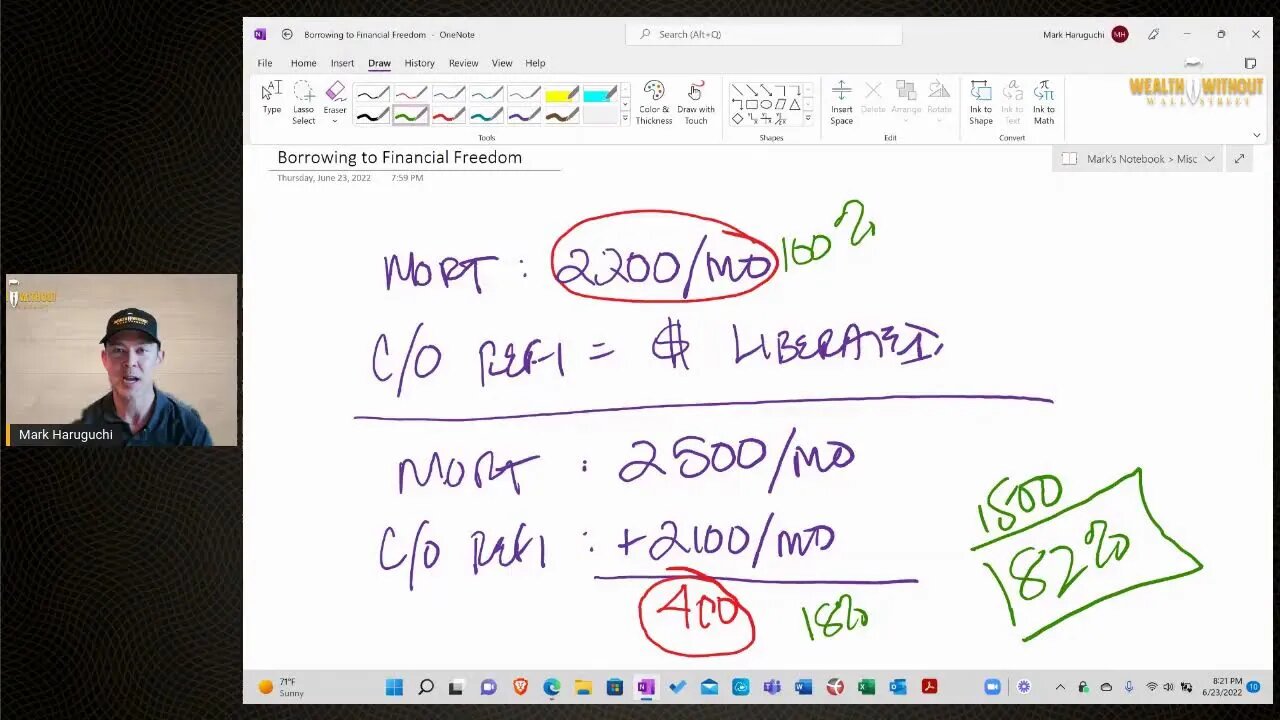 Borrowing to Financial Freedom - OneNote
Search (Alt+Q)
Mark Haruguchi MH
File Home Insert Draw History Review View Help
WEALTH WITHOUT
WALL STREET
Type
Lasso Select
Eraser
Color & Thickness
Draw with Touch
Insert Space
Delete
Arrange
Rotate
Ink to Shape
Ink to Text
Ink to Math
Tools
Shapes
Edit
Convert
Borrowing to Financial Freedom
Mark's Notebook > Misc
Thursday, June 23, 2022 7:59 PM
MORT : 2200/MO 100%
C/O REFI = $ LIBERATED
MORT : 2500/MO
C/O REFI : +2100/MO
400 18%
1800
182%
WITHOUT
Mark Haruguchi
71°F
Sunny
8:21 PM
6/23/2022
10